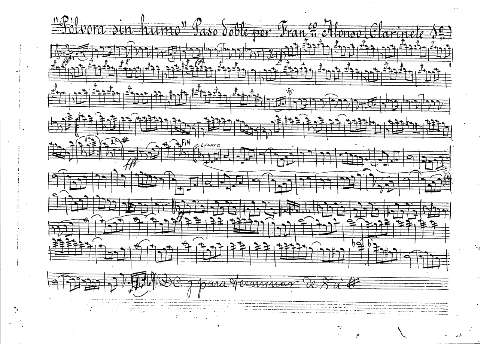 "Pólvora sin humo" Paso doble por Fran.co Alonso Clarinete 1º
FIN
D.C. y para terminar de